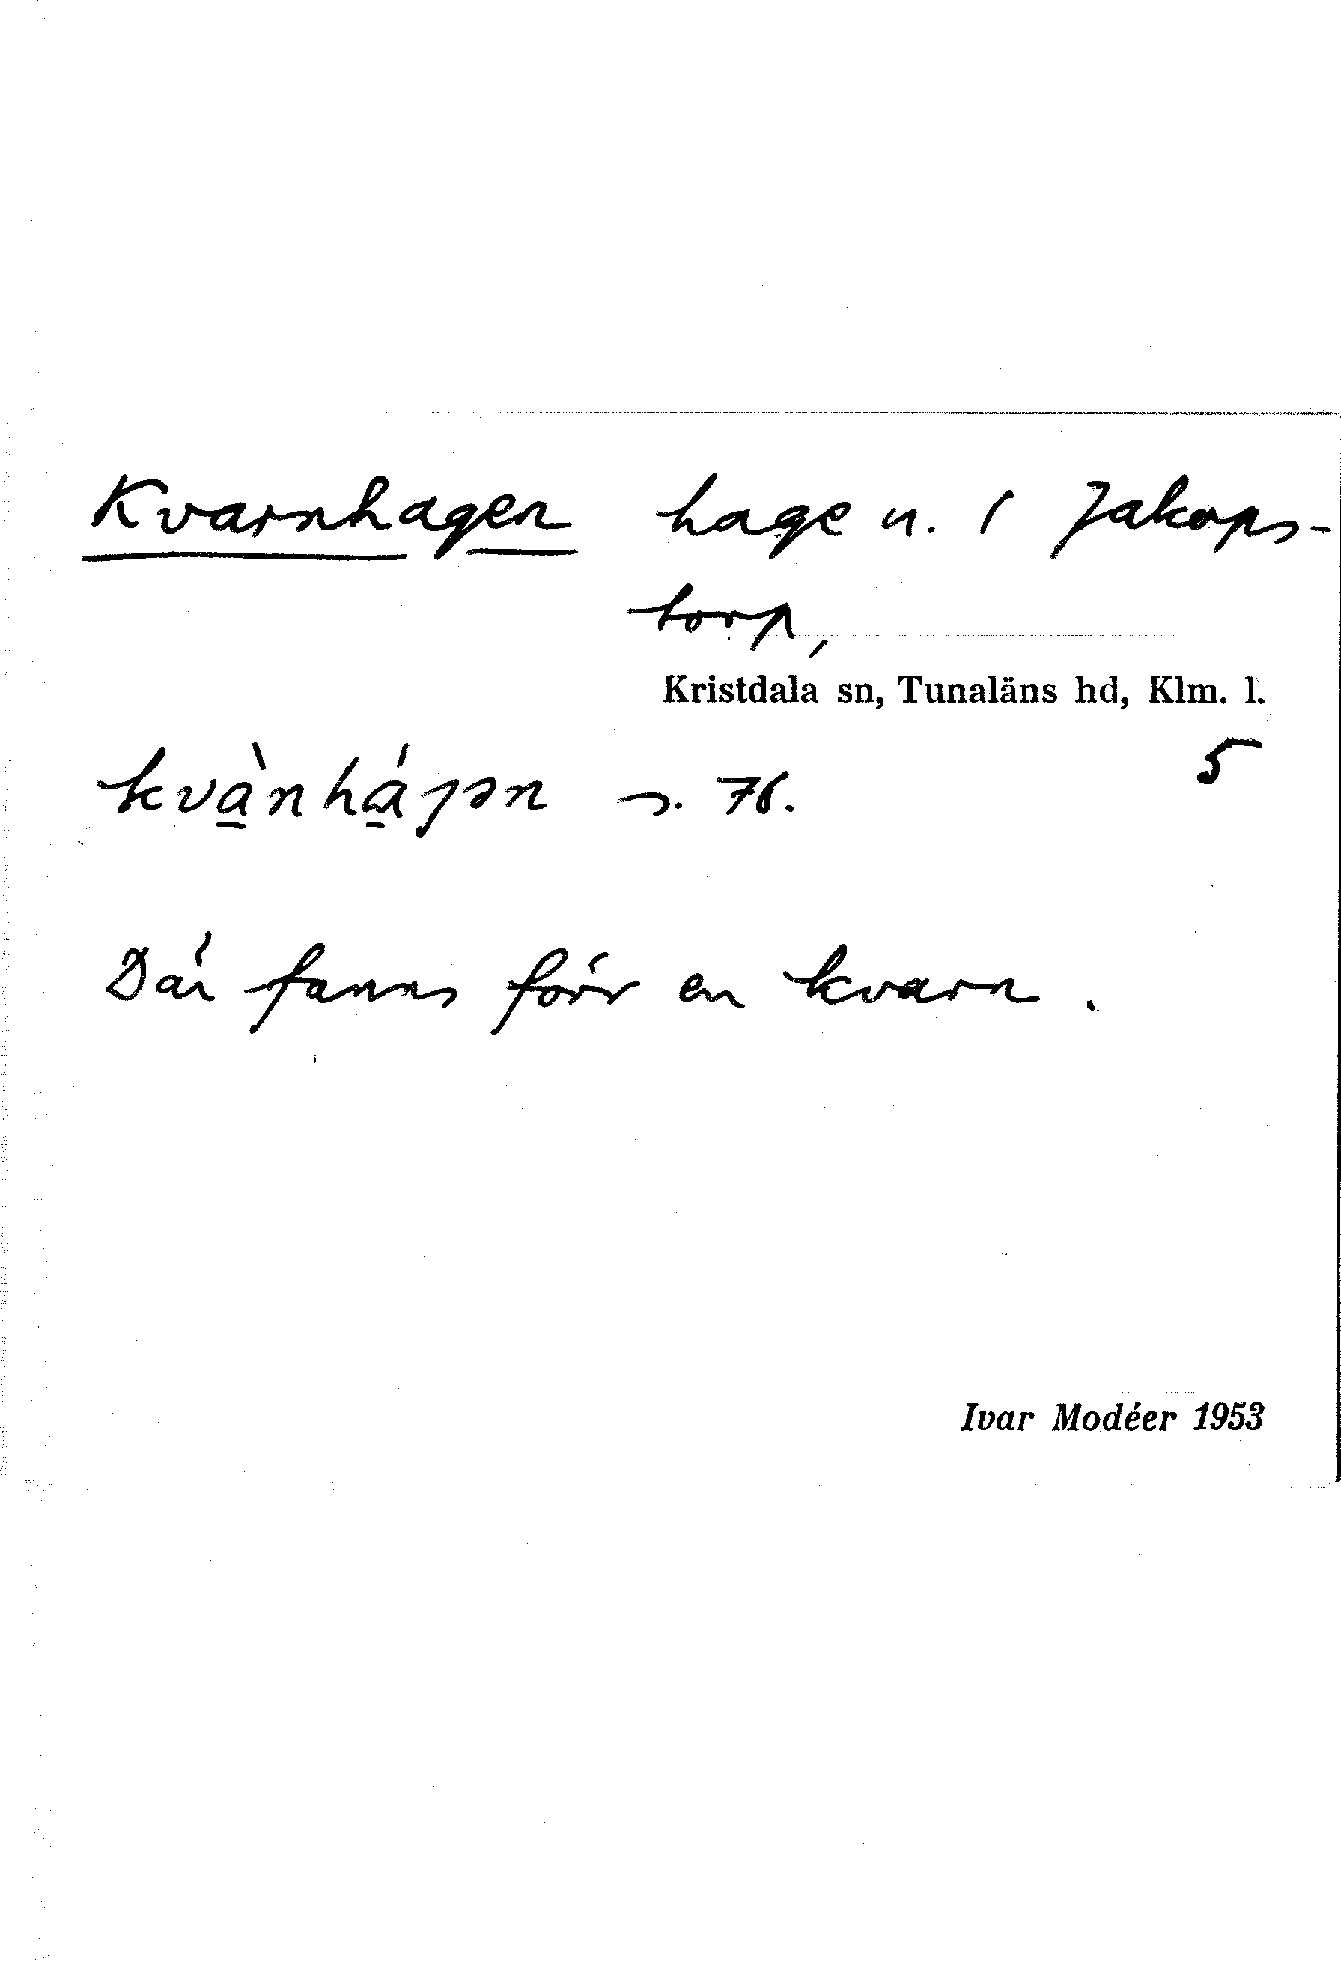 Kvarnhagen hage u. 1 Jakops-
torp,
Kristdala sn, Tunaläns hd, Klm. l.
5
kvà̱nhá̱ɟən s. 76.
Där fanns förr en kvarn.
Ivar Modéer 1953